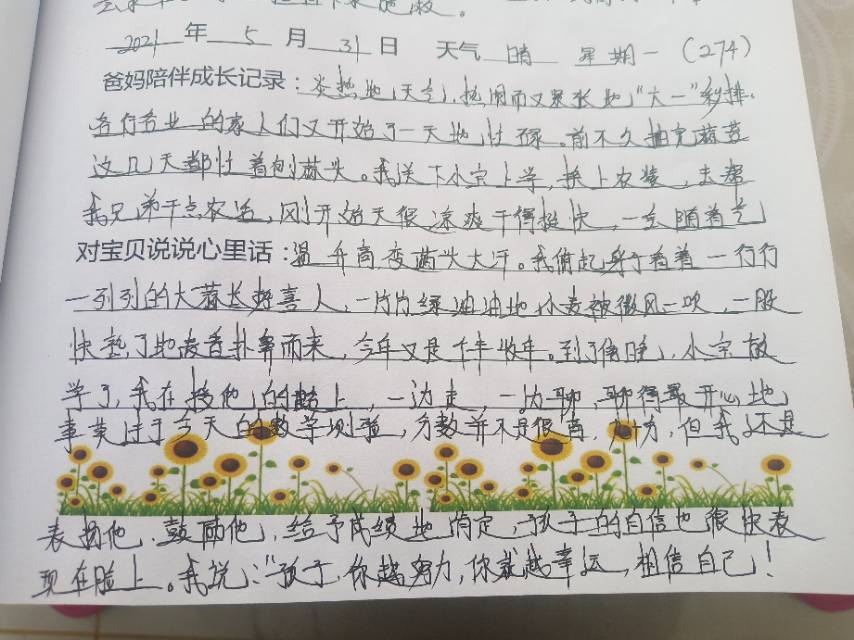 2021 年 5 月 31 日 天气 晴 星期一 (274)
爸妈陪伴成长记录：炎热地天气，热闹而又紧张地“大一”彩排，
各行各业的家人们又开始了一天地忙碌。前不久抽完蒜苔
这几天都忙着刨蒜头。我送下小宝上学，换上农装，去帮
我兄弟干点农活，刚开始天很凉爽干得挺快，一会随着气
对宝贝说说心里话：温升高变满头大汗。我俯起身子看着一行行
一列列的大蒜长好喜人，一片片绿油油地小麦被微风一吹，一股
快熟了地麦香扑鼻而来，今年又是个丰收年。到了傍晚，小宝放
学了，我在接他的路上，一边走一边聊，聊得最开心地
事莫过于今天的数学测验，分数并不是很高，几分，但我还是
表扬他、鼓励他，给予成绩地肯定，孩子的自信也很快表
现在脸上。我说：“孩子，你越努力，你就越幸运，相信自己！